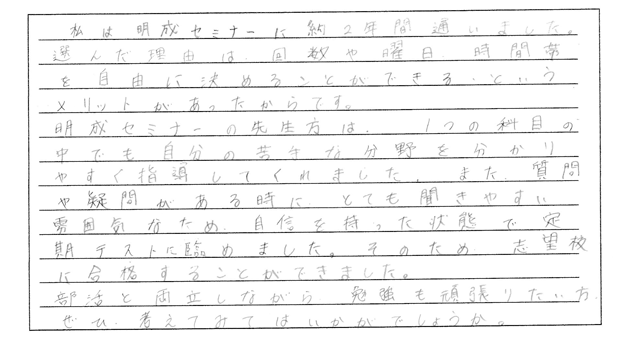 私は明成セミナーに約2年間通いました。
選んだ理由は、回数や曜日、時間帯
を自由に決めることができる、という
メリットがあったからです。
明成セミナーの先生方は、1つの科目の
中でも自分の苦手な分野を分かり
やすく指導してくれました。また、質問
や疑問がある時に、とても聞きやすい
雰囲気なため、自信を持った状態で定
期テストに臨めました。そのため、志望校
に合格することができました。
部活と両立しながら、勉強も頑張りたい方、
ぜひ、考えてみてはいかがでしょうか。